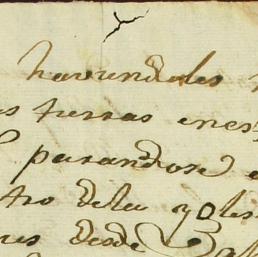 haviendoles
as tierras enes
parandose
tro dela yoles
res desde